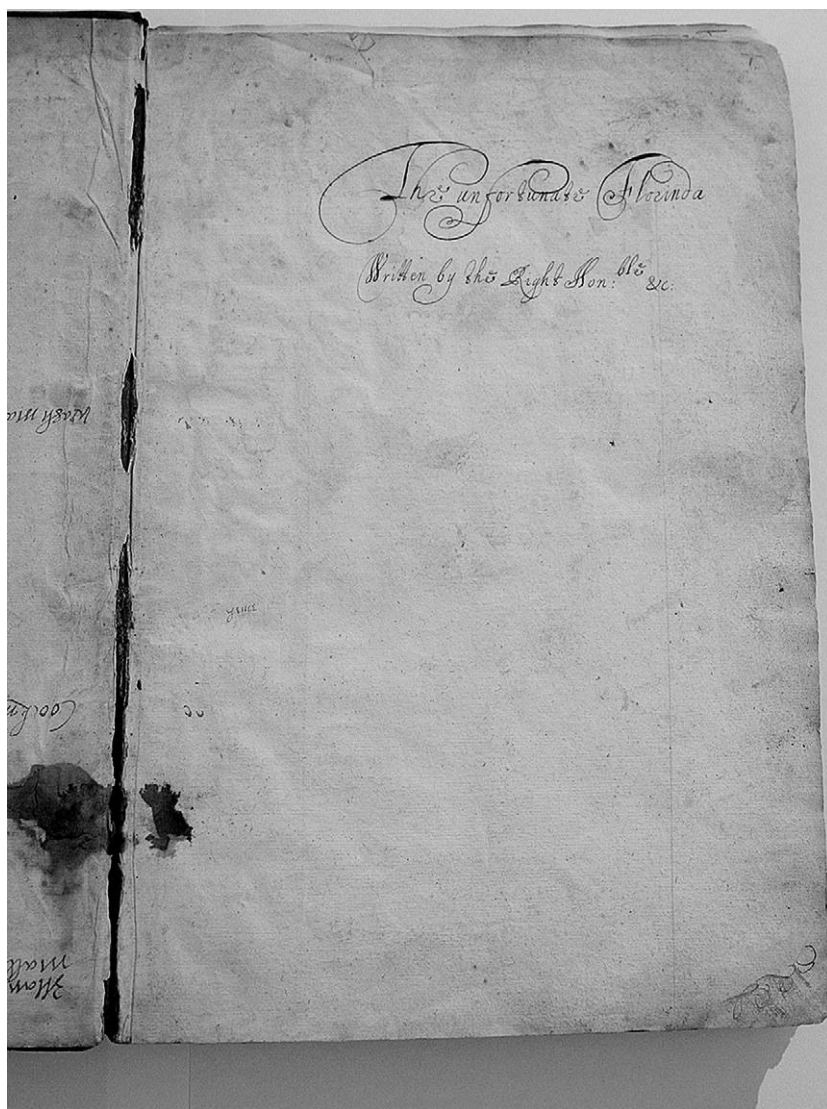 The unfortunate Florinda
Written by the Right Hon:ble &c:
wash ma